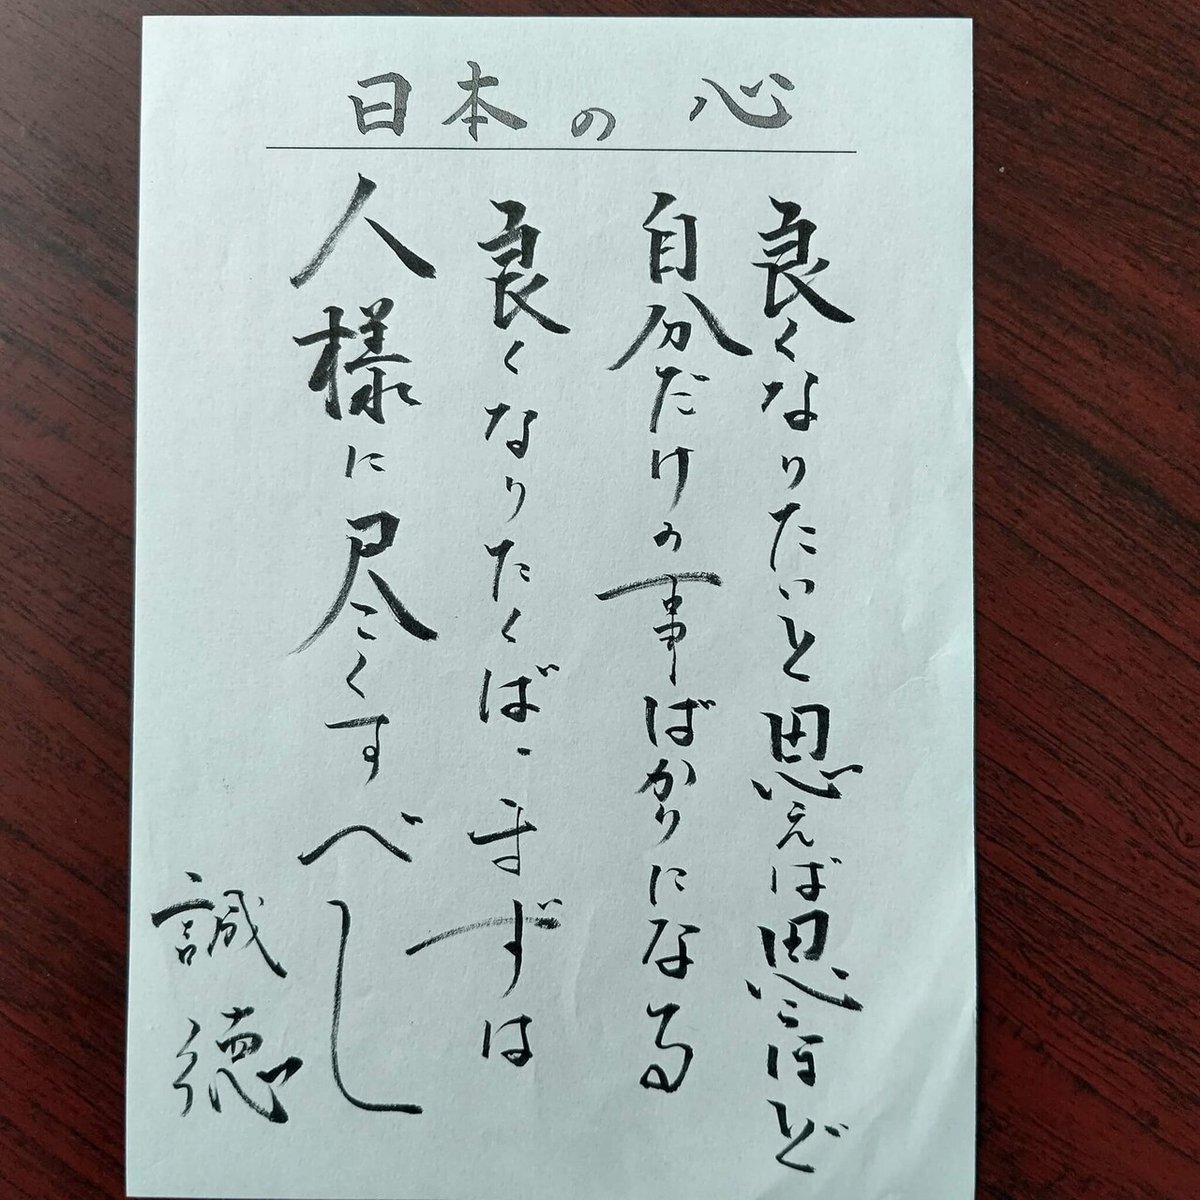 日本の心
良くなりたいと思えば思うほど
自分だけの事ばかりになる
良くなりたくば、まずは
人様に尽くすべし
誠徳